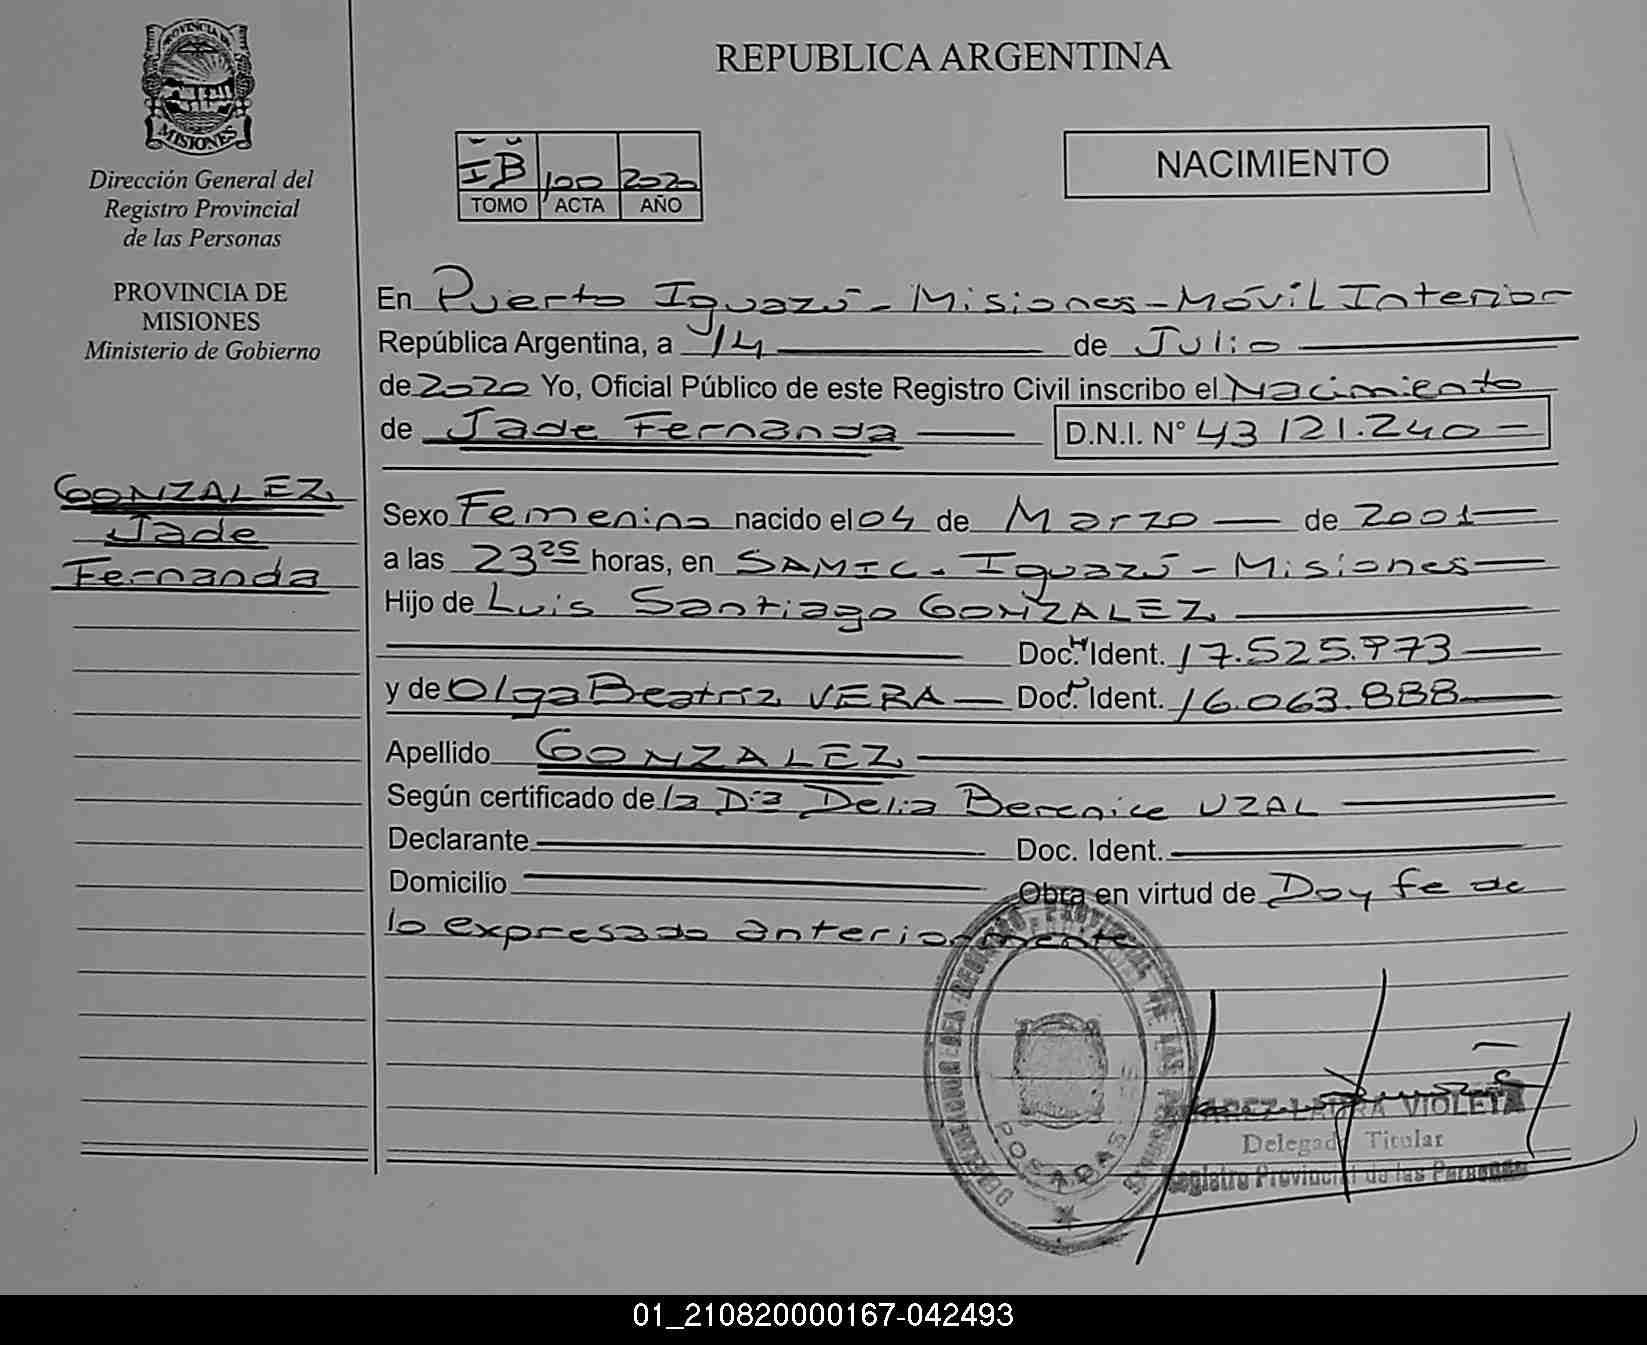 PROVINCIA DE
MISIONES
Dirección General del
Registro Provincial
de las Personas
PROVINCIA DE
MISIONES
Ministerio de Gobierno
GONZALEZ,
Jade
Fernanda
REPUBLICA ARGENTINA
I B 100 2020
TOMO ACTA AÑO
NACIMIENTO
En Puerto Iguazú - Misiones - Móvil Interior
República Argentina, a 14 de Julio
de 2020 Yo, Oficial Público de este Registro Civil inscribo el Nacimiento
de Jade Fernanda D.N.I. N° 43 121.240
Sexo Femenino nacido el 04 de Marzo de 2001
a las 23 25 horas, en SAMIC. Iguazú - Misiones
Hijo de Luis Santiago GONZALEZ
Doc. Ident. 17.525.973
y de Olga Beatriz VERA Doc. Ident. 16.063.888
Apellido GONZALEZ
Según certificado de la Dra Delia Berenice UZAL
Declarante Doc. Ident.
Domicilio Obra en virtud de Doy fe de
lo expresado anteriormente
POSADAS
LAURA VIOLETA
Delegada Titular
Registro Provincial de las Personas
01_210820000167-042493